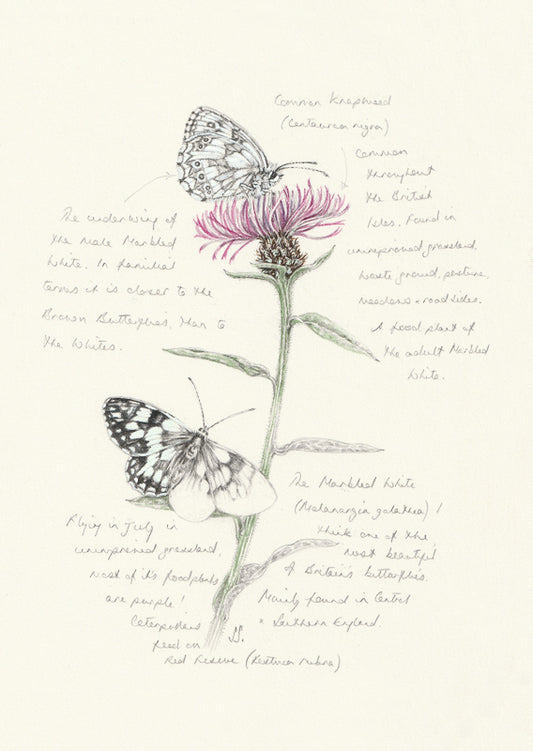 Common Knapweed
(Centaurea nigra)
Common
throughout
the British
Isles. Found in
unimproved grassland,
waste ground, pasture,
meadows + road sides.
A food plant of
the adult Marbled
White.
The underwing of
the male Marbled
White. In familial
terms it is closer to the
Brown Butterflies, than to
the Whites.
The Marbled White
(Melanargia galathea) I
think one of the
most beautiful
of Britain's butterflies.
Mainly found in Central
+ Southern England.
Flying in July in
unimproved grassland,
most of it's foodplants
are purple!
Caterpillars
feed on
Red Fescue (Festuca rubra)
JS.